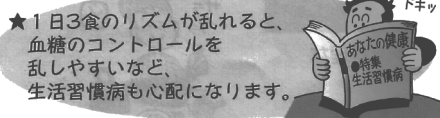 ドキッ
★1日3食のリズムが乱れると、
血糖のコントロールを
乱しやすいなど、
生活習慣病も心配になります。
あなたの健康
●特集
生活習慣病